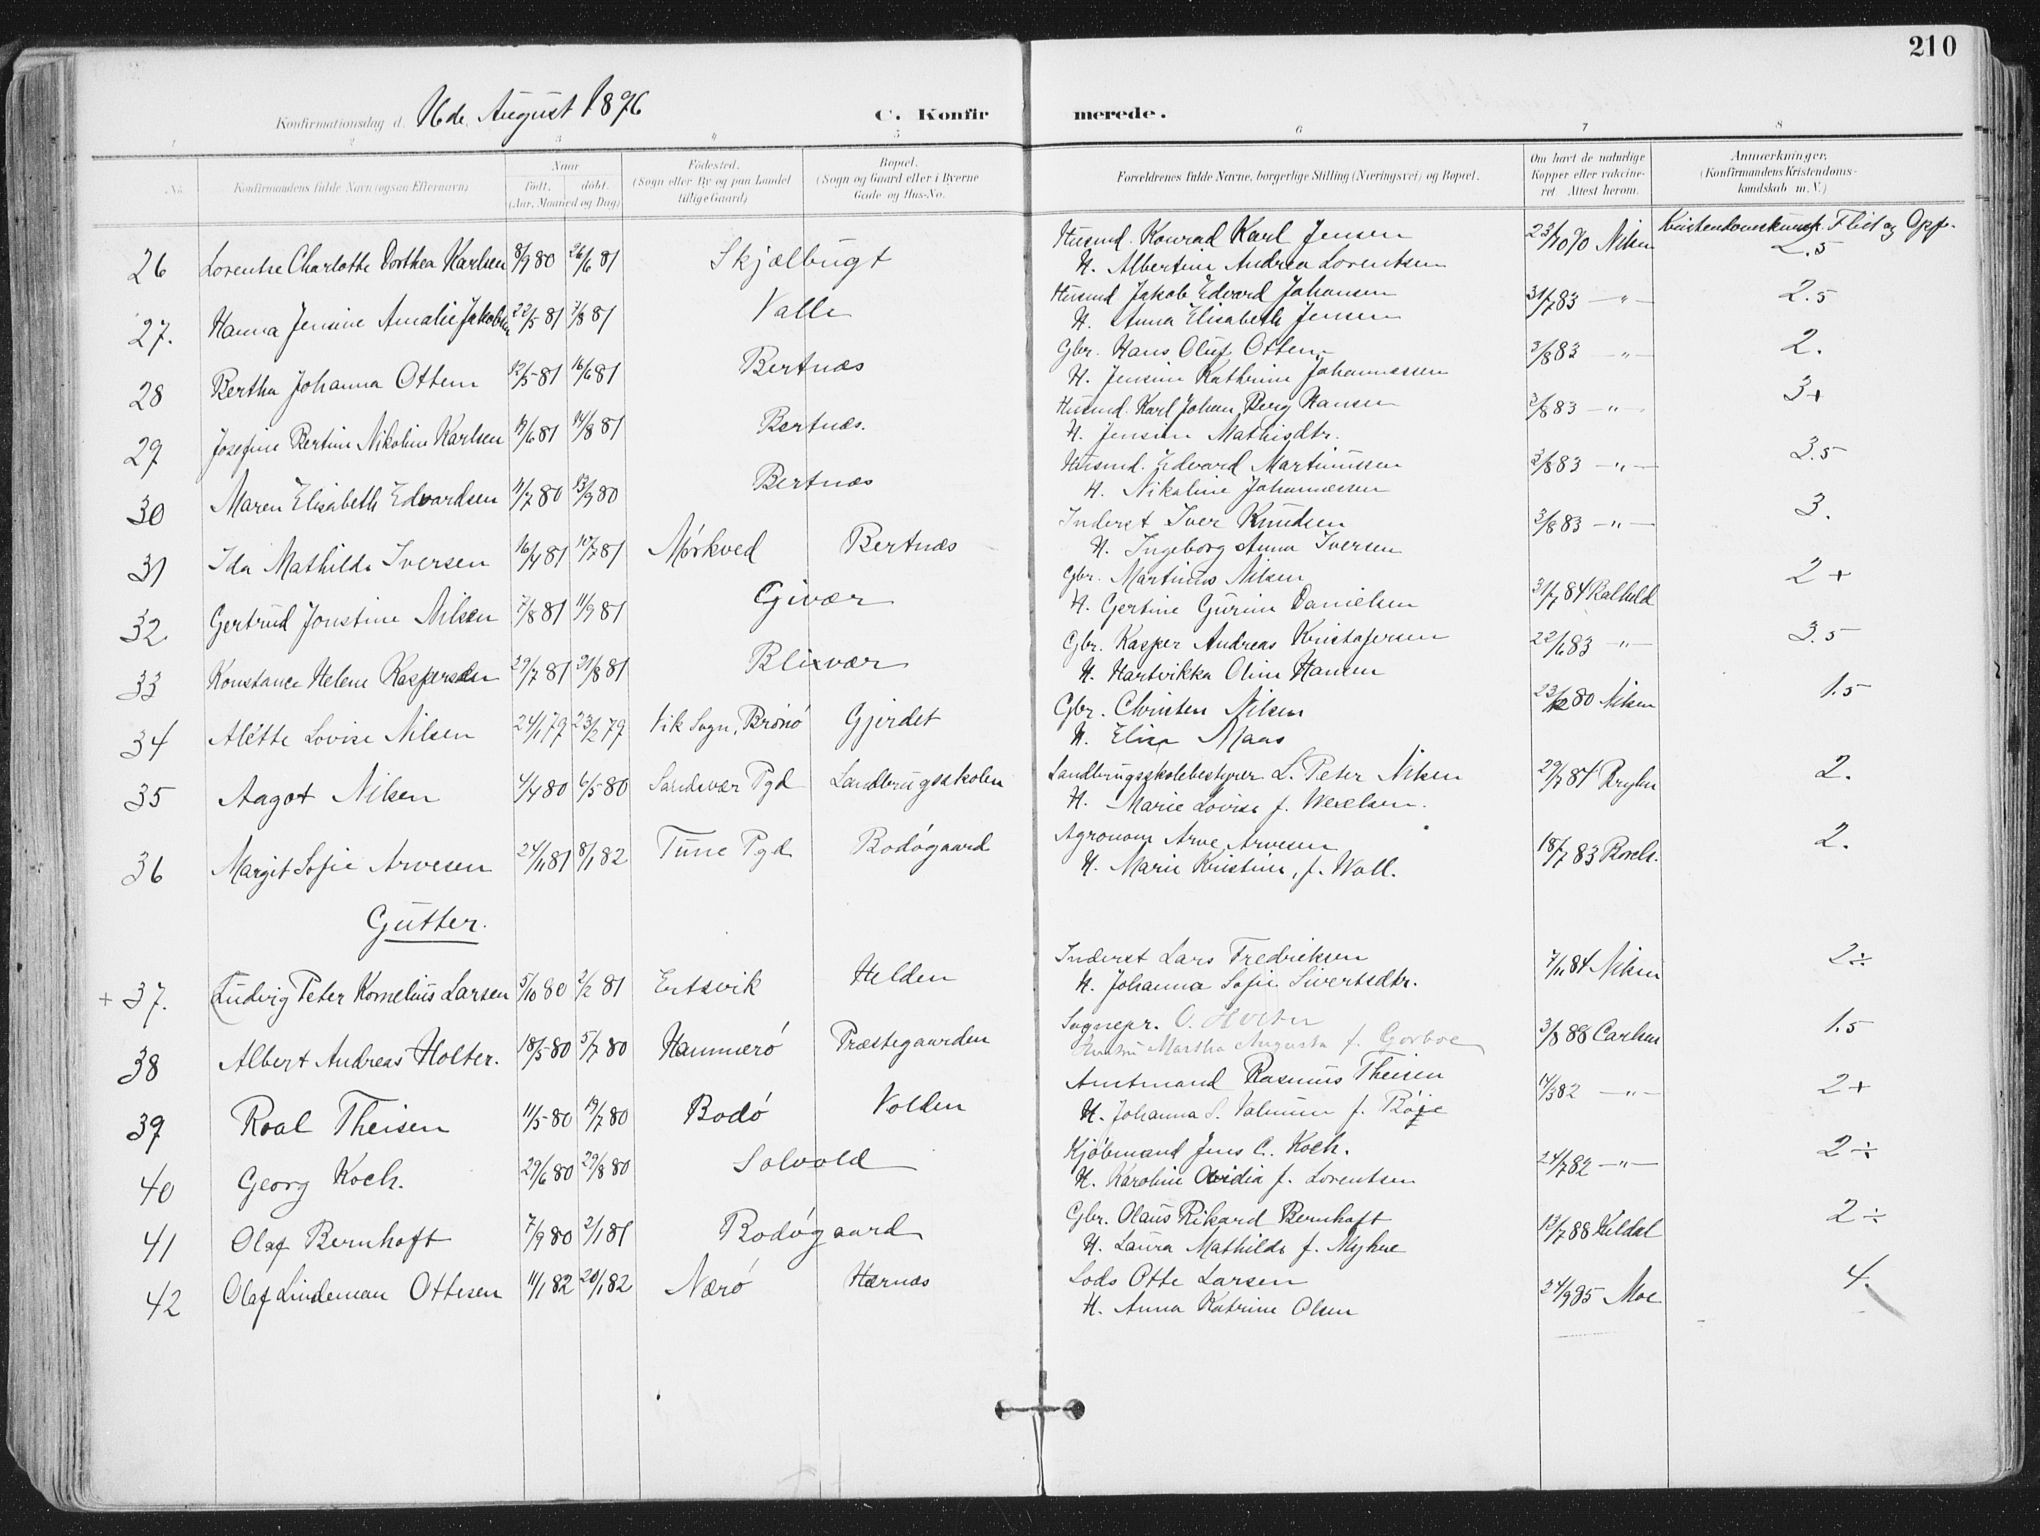 210
Konfirmationsdag d. 16de August 1896 C. Konfirmerede.
1 2 3 4 5 6 7 8
No. Konfirmandens fulde Navn (ogsaa Efternavn) Naar født. døbt. (Aar, Maaned og Dag) Fødested. (Sogn eller By og paa Landet tillige Gaard) Bopæl. (Sogn og Gaard eller i Byerne Gade og Hus-No. Forældrenes fulde Navne, borgerlige Stilling (Næringsvei) og Bopæl. Om havt de naturlige Kopper eller vakcineret. Attest herom. Anmærkninger. (Konfirmandens Kristendomskundskab m. V.)
Kristendomskunsk. Flid og Opf.
26 Lorentse Charlotte Dorthea Karlsen 8/9 80 26/6 81 Skjælbugt Husmd. Konrad Karl Jensen 23/10 Nilsen 2.5
H. Albertine Andrea Lorentsen
27. Hanna Jensine Amalie Jakobsen 22/5 81 7/8 81 Valle Husmd Jakob Edvard Johansen 31/7 83 —"— 2.5
H. Anna Elisabeth Jensen
28 Bertha Johanna Ottem 12/5 81 16/6 81 Bertnæs Gbr. Hans Oluf Ottem 3/8 83 —"— 2.
H. Jensine Kathrine Johannessen
29 Josefine Bertine Nikoline Karlsen 19/6 81 14/8 81 Bertnæs. Husmd. Karl Johan Berg Hansen 3/8 83 —"— 3+
H. Jensine Mathisdtr.
30 Maren Elisabeth Edvardsen 11/7 80 23/9 80 Bertnæs Husmd. Edvard Martinussen 3/8 83 —"— 3.5
H. Nikoline Johannessen
31 Ida Mathilde Iversen 16/4 81 10/7 81 Mørkved Bertnæs Inderst Iver Knudsen 3/8 83 —"— 3.
H. Ingeborg Anna Iversen
32 Gertrud Jonstine Nilsen 7/8 81 11/9 81 Givær Gbr. Martinus Nilsen 31/7 84 Kalheld 2+
H. Gertine Gurine Danielsen
33 Konstance Helene Kaspersen 29/7 81 21/8 81 Blixvær Gbr. Kasper Andreas Kristofersen 22/6 83 —"— 3.5
H. Hartvikka Oline Hansen
34 Alétte Lovise Nilsen 24/1 79 23/2 79 Vik Sogn, Brønø Gjerdet Gbr. Christen Nilsen 23/2 80 Nilsen 1.5
H. Elisa Maas
35 Aagot Nilsen 4/4 80 6/5 80 Sandevær Pgd Landbrugsskolen Landbrugsskolebestyrer L. Peter Nilsen 29/7 84 2.
H. Marie Lovise f. Wexelsen.
36 Margit Sofie Arvesen 24/11 81 8/1 82 Tune Pgd Bodøgaard Agronom Arve Arvesen 18/7 83 2.
H. Marie Kristine, f. Woll.
Gutter.
+ 37. Ludvig Peter Kornelius Larsen 5/10 80 2/2 81 Entsvik Helden Inderst Lars Fredriksen 7/11 84 Nilsen 2÷
H. Johanna Sofie Sivertsdtr.
38 Albert Andreas Holter. 18/5 80 5/7 80 Hammerø Præstegaarden Sognepr. O. Holter 3/8 88 Carlsen 1.5
Hustru Martha Augusta f. Gorboe
39 Roal Theisen 11/5 80 19/7 80 Bodø Volden Amtmand Rasmus Theisen 14/3 82 —"— 2+
H. Johanna S. Valmine f. Bøje
40 Georg Koch. 29/6 80 29/8 80 Solvold Kjøbmand Jens C. Koch. 24/7 82 —"— 2÷
H. Karoline Ovidia f. Lorentsen
41 Olaf Bernhoft 7/9 80 2/1 81 Bodøgaard Gbr. Olaus Rikard Bernhoft 13/7 88 Kildal 2÷
H. Laura Mathilde f. Myhre
42 Olaf Lindeman Ottesen 11/1 82 20/1 82 Nærø Hernæs Lods Otte Larsen 24/9 95 Moe 4.
H. Anna Katrine Olsen